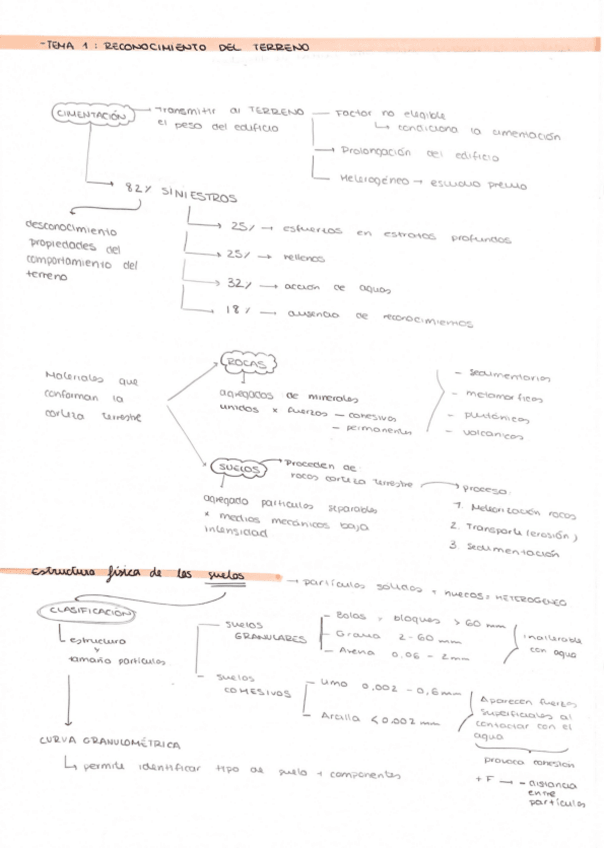 - TEMA 1: RECONOCIMIENTO DEL TERRENO
CIMENTACIÓN → Transmitir al TERRENO el peso del edificio
— Factor no elegible
↳ condiciona la cimentación
→ Prolongación del edificio
— Heterogéneo → estudio previo
→ 82% SINIESTROS
desconocimiento
propiedades del
comportamiento del
terreno
→ 25% → esfuerzos en estratos profundos
→ 25% → rellenos
→ 32% → acción de aguas
→ 18% → ausencia de reconocimientos
Materiales que
conforman la
corteza terrestre
ROCAS
agregados de minerales
unidos x fuerzas — cohesivas
— permanentes
- sedimentarias
- metamorficas
- plutónicas
- volcánicas
SUELOS → Proceden de:
rocas corteza terrestre → proceso:
agregado partículas separables
x medios mecánicos baja
intensidad
1. Meteorización rocas
2. Transporte (erosión)
3. Sedimentación
estructura física de los suelos → partículas sólidas + huecos = HETEROGÉNEO
CLASIFICACIÓN
↳ estructura
y
tamaño partículas
- SUELOS
GRANULARES
- Bolos y bloques > 60 mm
- Grava 2 - 60 mm
- Arena 0,06 - 2mm
inalterable
con agua
- SUELOS
COHESIVOS
- Limo 0,002 - 0,6mm
- Arcilla < 0.002 mm
Aparecen fuerzas
superficiales al
contactar con el
agua
provoca cohesión
+ F → - distancia
entre
partículas
CURVA GRANULOMÉTRICA
↳ permite identificar tipo de suelo + componentes